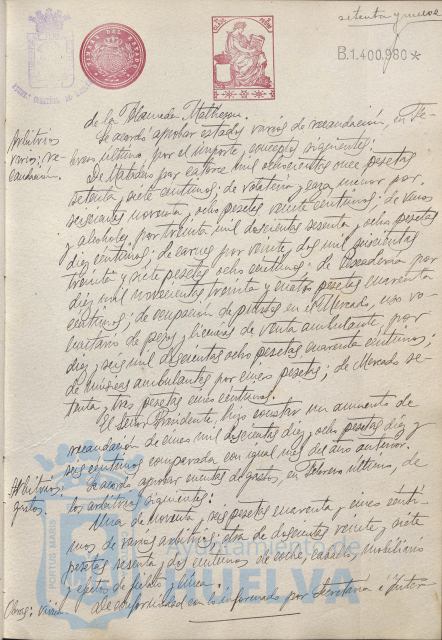 setenta y nueve
TIMBRE DEL ESTADO
B.1.400.980*
de la Blanca de Matheson.
Arbitrios varios; recaudación.
Se acordó aprobar estados varios de recaudación, en Febrero último, por el importe y conceptos siguientes:
De Matadero por catorce mil ochocientos once pesetas
setenta y siete céntimos; de volatería y caza menor por
seiscientas noventa y ocho pesetas veinte céntimos; de vinos
y alcoholes, por treinta mil doscientas sesenta y ocho pesetas
diez céntimos; de carnes por veinte y dos mil seiscientas
treinta y siete pesetas ocho céntimos; de Pescadería por
diez mil novecientas treinta y cuatro pesetas cuarenta
céntimos; de ocupación de puestos en el Mercado, uso voluntario de pesas y licencias de venta ambulante, por
diez y seis mil doscientas ocho pesetas cuarenta céntimos;
de músicos ambulantes por cinco pesetas; de Mercado setenta y tres pesetas cinco céntimos.
El Señor Presidente, hizo constar un aumento de
recaudación de cinco mil doscientas diez y ocho pesetas diez y
seis céntimos comparada con igual mes del año anterior.
Arbitrios; gastos.
Se acordó aprobar cuentas de gastos, en Febrero último, de
los arbitrios siguientes:
Una de noventa y seis pesetas cuarenta y cinco céntimos de varios arbitrios; otra de doscientas veinte y siete
pesetas sesenta y dos céntimos de coche, caballos, mobiliario
y efectos de
De conformidad con lo informado por Secretaría e Inter
Ayuntamiento de
HUELVA
PORTUS MARIS